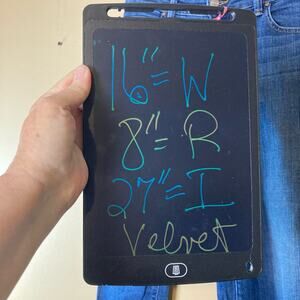 16"=W
8"=R
27"=I
Velvet